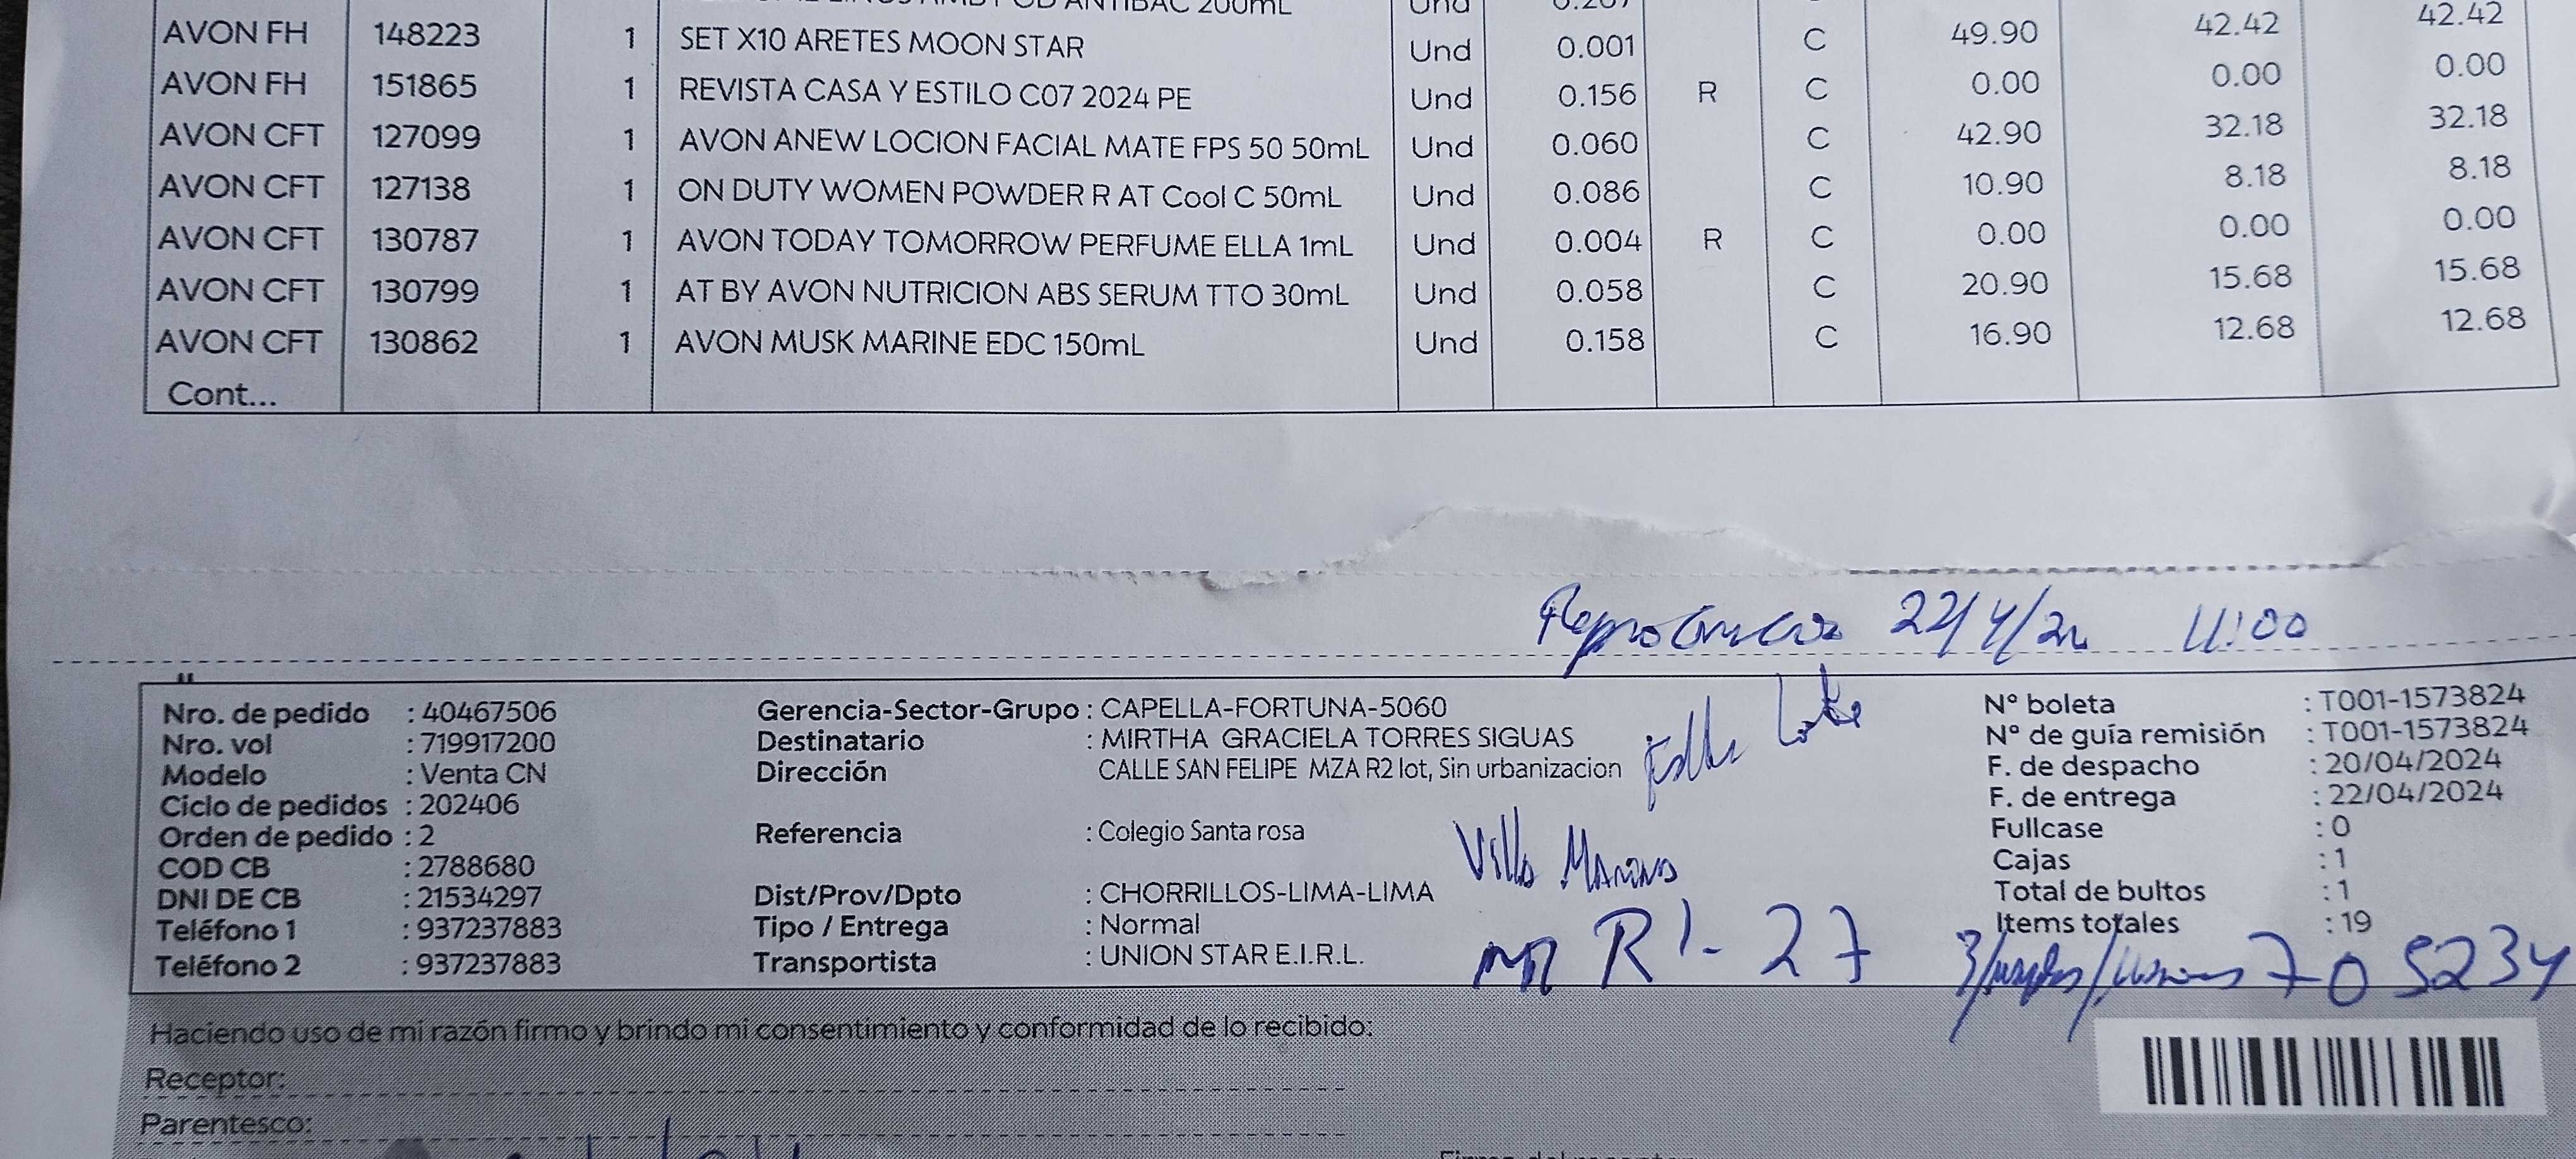 ANTIBAC 200mL Und
AVON FH 148223 1 SET X10 ARETES MOON STAR Und 0.001 C 49.90 42.42 42.42
AVON FH 151865 1 REVISTA CASA Y ESTILO C07 2024 PE Und 0.156 R C 0.00 0.00 0.00
AVON CFT 127099 1 AVON ANEW LOCION FACIAL MATE FPS 50 50mL Und 0.060 C 42.90 32.18 32.18
AVON CFT 127138 1 ON DUTY WOMEN POWDER R AT Cool C 50mL Und 0.086 C 10.90 8.18 8.18
AVON CFT 130787 1 AVON TODAY TOMORROW PERFUME ELLA 1mL Und 0.004 R C 0.00 0.00 0.00
AVON CFT 130799 1 AT BY AVON NUTRICION ABS SERUM TTO 30mL Und 0.058 C 20.90 15.68 15.68
AVON CFT 130862 1 AVON MUSK MARINE EDC 150mL Und 0.158 C 16.90 12.68 12.68
Cont...
22/4/24 11:00
Nro. de pedido : 40467506 Gerencia-Sector-Grupo : CAPELLA-FORTUNA-5060 N° boleta : T001-1573824
Nro. vol : 719917200 Destinatario : MIRTHA GRACIELA TORRES SIGUAS Falta Lote N° de guía remisión : T001-1573824
Modelo : Venta CN Dirección CALLE SAN FELIPE MZA R2 lot, Sin urbanizacion F. de despacho : 20/04/2024
Ciclo de pedidos : 202406 F. de entrega : 22/04/2024
Orden de pedido : 2 Referencia : Colegio Santa rosa Fullcase : 0
COD CB : 2788680 Villa Marina Cajas : 1
DNI DE CB : 21534297 Dist/Prov/Dpto : CHORRILLOS-LIMA-LIMA Total de bultos : 1
Teléfono 1 : 937237883 Tipo / Entrega : Normal Items totales : 19
Teléfono 2 : 937237883 Transportista : UNION STAR E.I.R.L. R1-27 705234
Haciendo uso de mi razón firmo y brindo mi consentimiento y conformidad de lo recibido:
Receptor:
Parentesco: